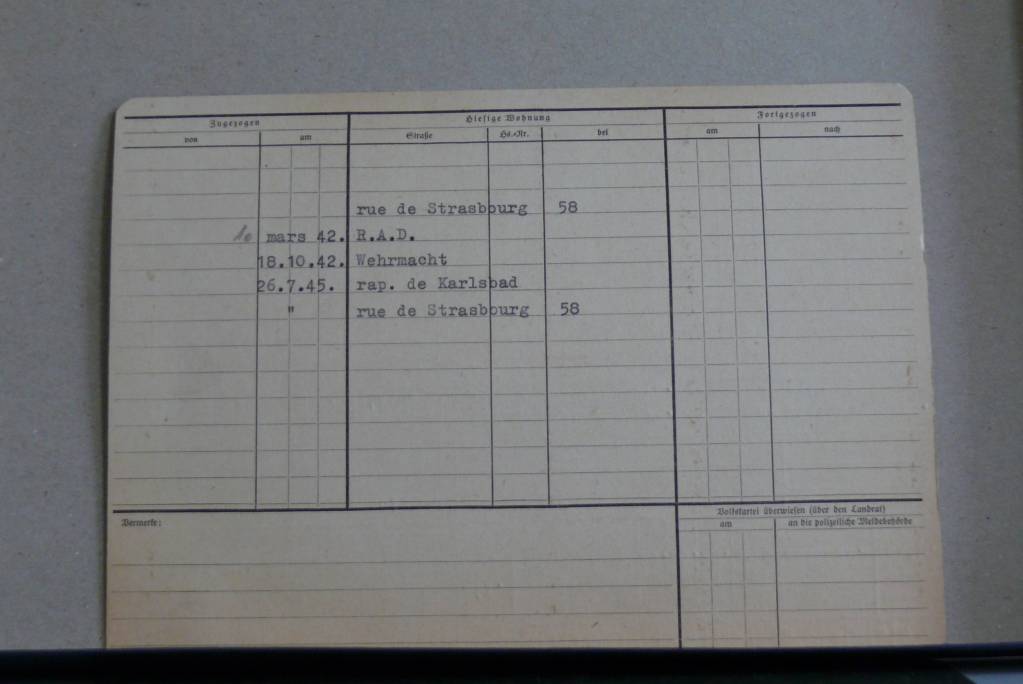 Zugezogen Hiesige Wohnung Fortgezogen
von am Straße Hs.-Nr. bei am nach
rue de Strasbourg 58
mars 42. R.A.D.
18.10.42. Wehrmacht
26.7.45. rap. de Karlsbad
" rue de Strasbourg 58
Vermerke: Volkskartei überwiesen (über den Landrat)
am an die polizeiliche Meldebehörde